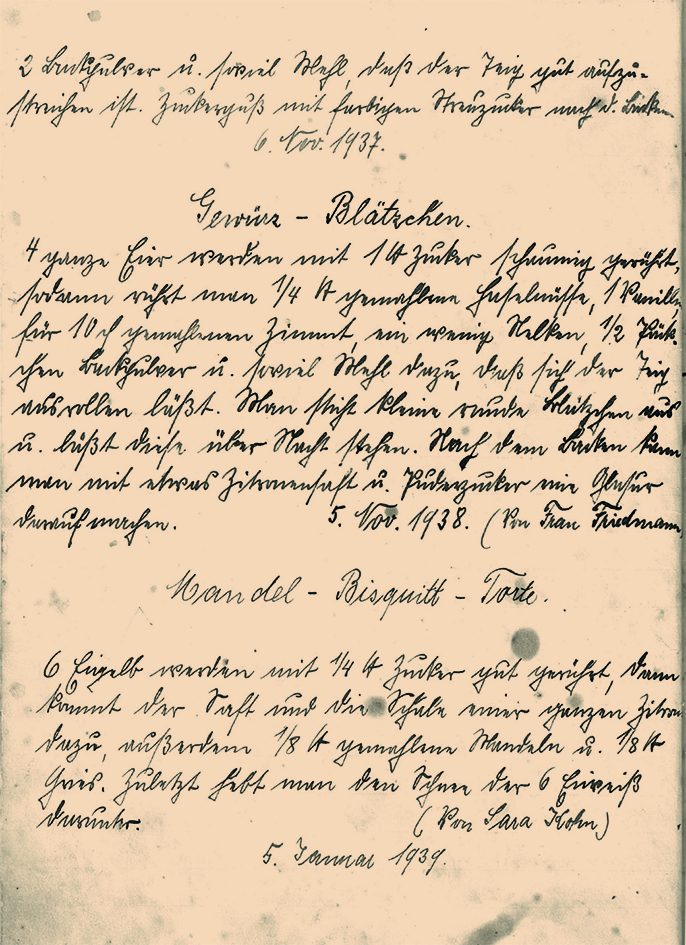 2 Backpulver u. soviel Mehl, daß der Teig gut aufzu-
streichen ist. Zuckerguß mit farbigen Streuzucker nach d. Backen.
6. Nov. 1937.
Gewürz - Blätzchen.
4 ganze Eier werden mit 1 ℔ Zucker schaumig gerührt,
sodann rührt man 1/4 ℔ gemahlene Haselnüsse, 1 Vanille,
für 10 ₰ gemahlenen Zimmt, ein wenig Nelken, 1/2 Päck-
chen Backpulver u. soviel Mehl dazu, daß sich der Teig
ausrollen läßt. Man sticht kleine runde Blätzchen aus
u. läßt diese über Nacht stehen. Nach dem Backen kann
man mit etwas Zitronensaft u. Puderzucker eine Glasur
darauf machen. 5. Nov. 1938. (Von Frau Friedmann
Mandel - Bisquitt - Torte.
6 Eigelb werden mit 1/4 ℔ Zucker gut gerührt, dann
kommt der Saft und die Schale einer ganzen Zitron
dazu, außerdem 1/8 ℔ gemahlene Mandeln u. 1/8 ℔
Gries. Zuletzt hebt man den Schnee der 6 Eiweiß
darunter. (Von Sara Kohn)
5. Januar 1939.